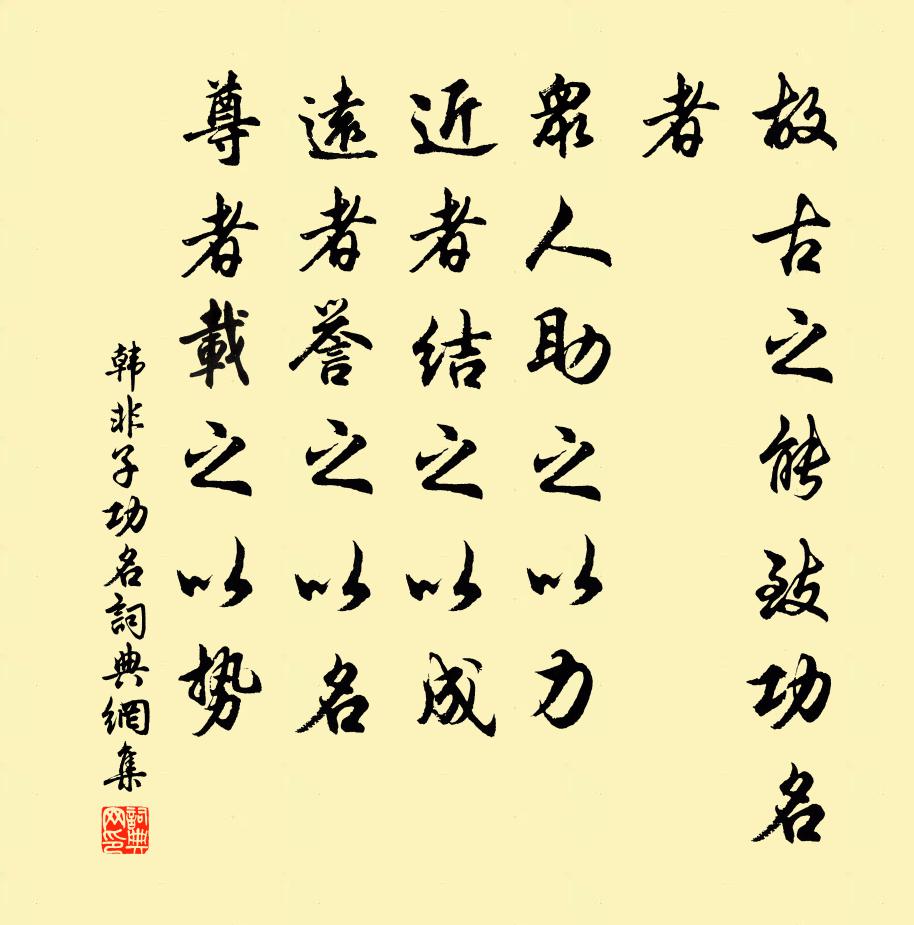 故古之能致功名
者
眾人助之以力
近者結之以成
遠者誉之以名
尊者載之以势
韩非子功名詞典網集
詞典
网印